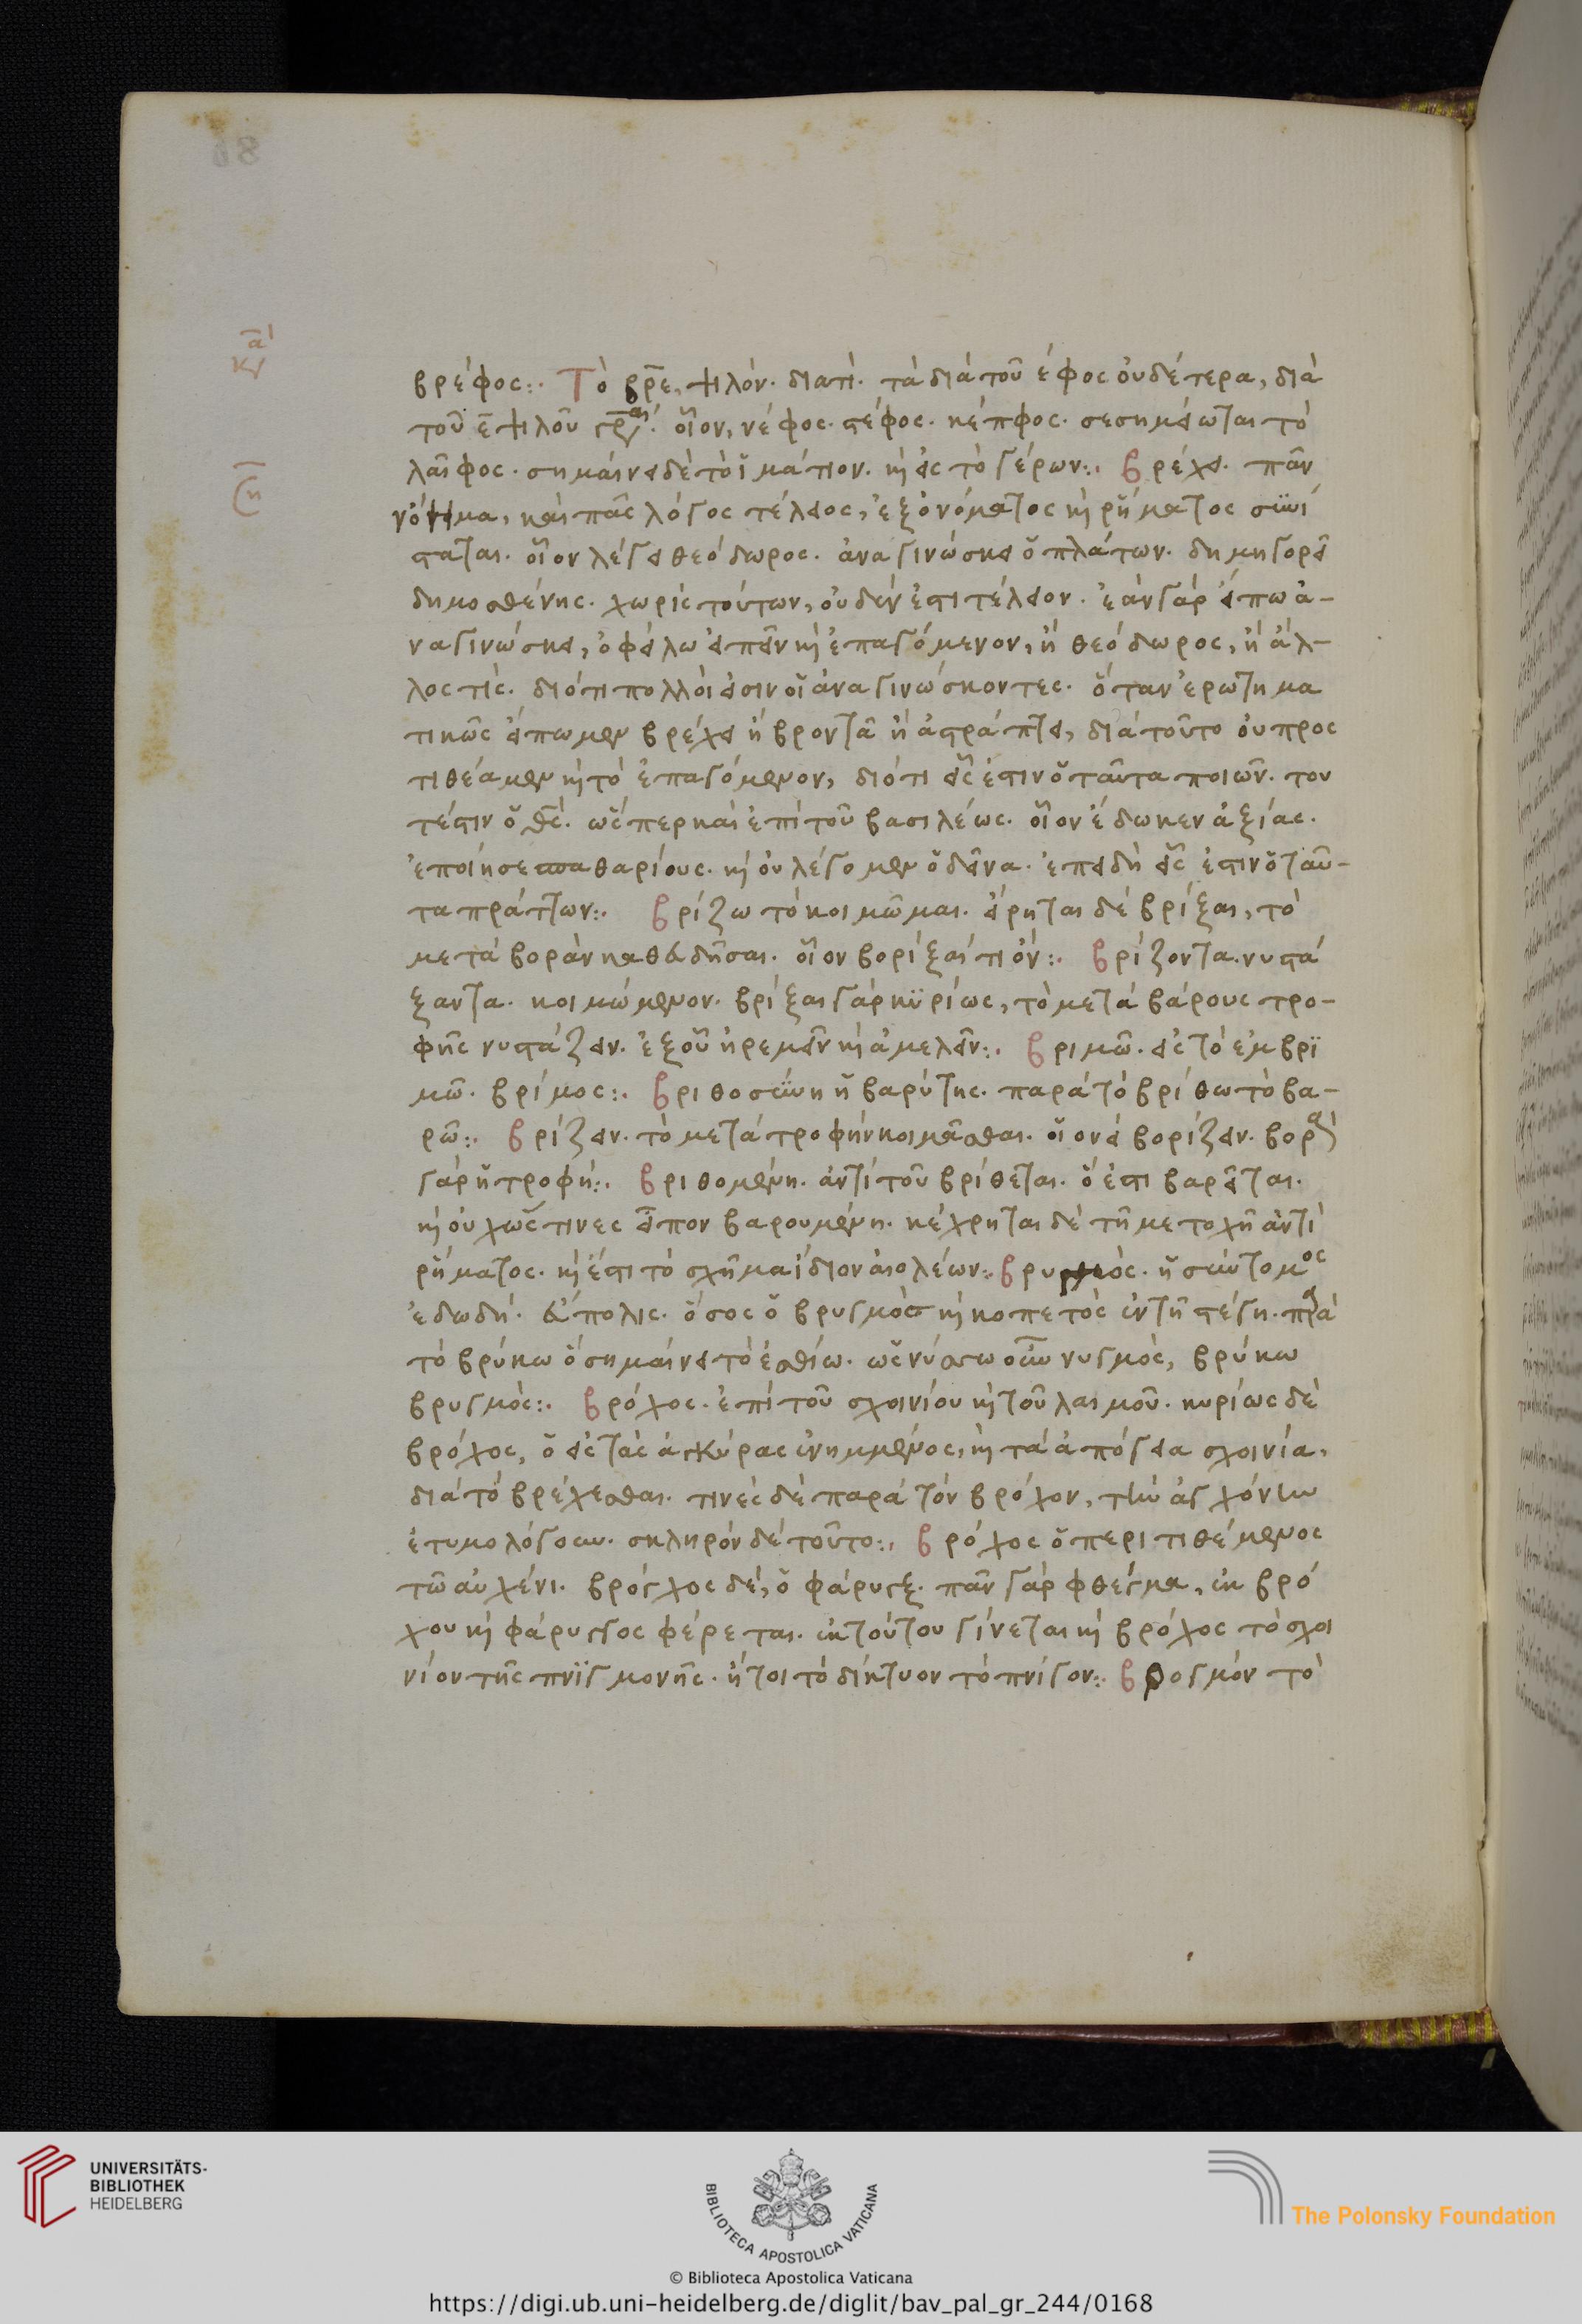 86
κ α
η
βρέφος:. Τὸ βρε, ψιλόν. διατί. τὰ διὰ τοῦ έφος οὐδέτερα, διὰ
τοῦ ε ψιλοῦ γρ. οἷον, νέφος. στέφος. κέπφος. σεσημείωται τὸ
λαῖφος. σημαίνει δὲ τὸ ἱμάτιον. καὶ εἰς τὸ γέρων:. βρέχει. πᾶν
νόημα, καὶ πᾶς λόγος τέλειος, ἐξ ὀνόματος καὶ ῥήματος συνί
σταται. οἷον λέγει θεόδωρος. ἀναγινώσκει ὁ πλάτων. δημηγορεῖ
δημοσθένης. χωρὶς τούτων, οὐδέν ἐστι τέλειον. ἐὰν γάρ εἴπω ἀ-
ναγινώσκει, ὀφείλω εἰπεῖν καὶ ἐπαγόμενον, ἢ θεόδωρος, ἢ ἄλ-
λος τίς. διότι πολλοί εἰσιν οἱ ἀναγινώσκοντες. ὅταν ἐρωτημα
τικῶς εἴπωμεν βρέχει ἢ βροντᾶ ἢ ἀστράπτει, διὰ τοῦτο οὐ προς
τιθέαμεν καὶ τὸ ἐπαγόμενον, διότι εἷς ἐστιν ὁ ταῦτα ποιῶν. του
τέστιν ὁ θς. ὥσπερ καὶ ἐπὶ τοῦ βασιλέως. οἷον ἔδωκεν ἀξίας.
ἐποίησε σπαθαρίους. καὶ οὐ λέγομεν ὁ δεῖνα. ἐπειδὴ εἷς ἐστιν ὁ ταῦ-
τα πράττων:. βρίζω τὸ κοιμῶμαι. εἴρηται δὲ βρίξαι, τὸ
μετὰ βορὰν καθευδῆσαι. οἷον βορίξαί τι ὄν:. βρίζοντα. νυστά
ξαντα. κοιμώμενον. βρίξαι γάρ κυρίως, τὸ μετὰ βάρους τρο-
φῆς νυστάζειν. ἐξ οὗ ἠρεμεῖν καὶ ἀμελεῖν:. βριμῶ. εἰς τὸ ἐμβρι
μῶ. βρίμος:. βριθοσύνη ἡ βαρύτης. παρὰ τὸ βρίθω τὸ βα-
ρῶ:. βρίζειν. τὸ μετὰ τροφὴν κοιμᾶσθαι. οἱονεὶ βορίζειν. βορὰ
γάρ ἡ τροφή:. βριθομένη. ἀντὶ τοῦ βρίθεται. ὅ ἐστι βαρεῖται.
καὶ οὐχ ὥς τινες εἶπον βαρουμένη. κέχρηται δὲ τῆ μετοχῆ ἀντὶ
ῥήματος. καὶ ἔστι τὸ σχῆμα ἴδιον αἰολέων:. βρυγμὸς. ἡ σύντομος
ἐδωδή. εὔπολις. ὅσος ὁ βρυγμὸς καὶ κοπετὸς ἐν τῆ στέγη. παρὰ
τὸ βρύκω ὃ σημαίνει τὸ ἐσθίω. ὡς νύσσω νυγμὸς, βρύκω
βρυγμὸς:. βρόχος. ἐπὶ τοῦ σχοινίου καὶ τοῦ λαιμοῦ. κυρίως δὲ
βρόχος, ὁ εἰς τὰς ἀγκύρας ἐνημμένος, καὶ τὰ ἀπόγεια σχοινία,
διὰ τὸ βρέχεσθαι. τινὲς δὲ παρὰ τὸν βρόχον, τὴν ἀγχόνην
ἐτυμολόγουν. σκληρόν δὲ τοῦτο:. βρόχος ὁ περιτιθέμενος
τῶ αὐχένι. βρόγχος δὲ, ὁ φάρυγξ. πᾶν γάρ φθέγμα, ἐκ βρό
χου καὶ φάρυγγος φέρεται. ἐκ τούτου γίνεται καὶ βρόχος τὸ σχοι
νίον τῆς πνιγμονῆς. ἤτοι τὸ δίκτυον τὸ πνίγον:. βρογμόν τὸ
UNIVERSITÄTS-
BIBLIOTHEK
HEIDELBERG
BIBLIOTECA APOSTOLICA VATICANA
The Polonsky Foundation
© Biblioteca Apostolica Vaticana
https://digi.ub.uni-heidelberg.de/diglit/bav_pal_gr_244/0168